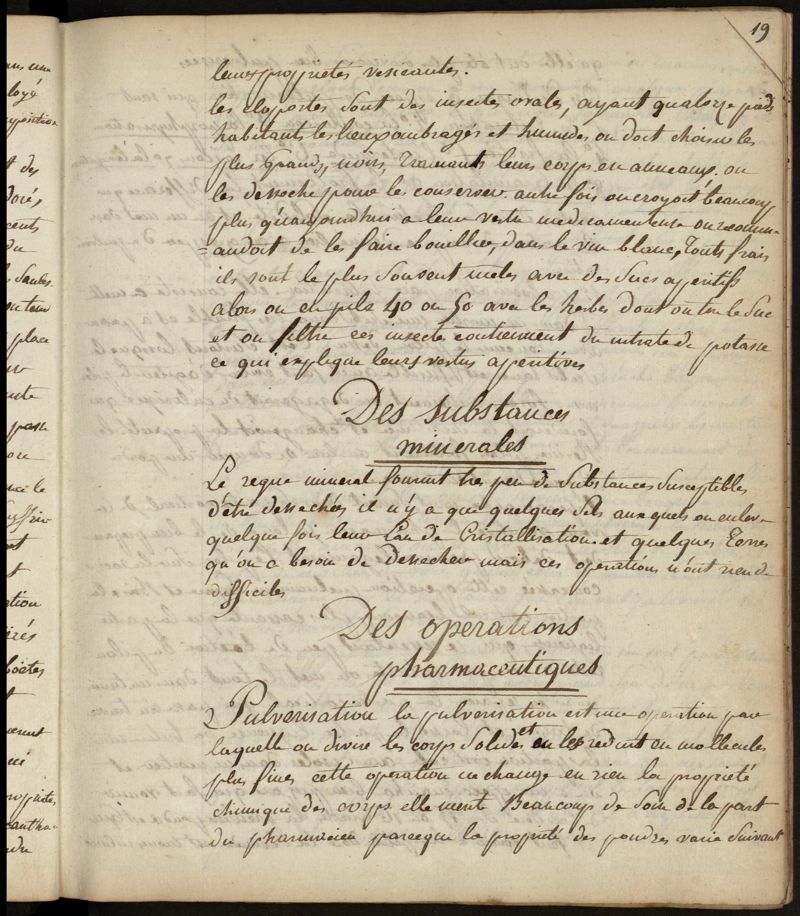 19
leurs proprietés vesicantes.
les cloportes sont des insectes ovales, ayant quatorze pieds
habitants les lieux ombragés et humides on doit choisir les
plus grands, noirs, Trainants leurs corps en anneaux. on
les desseche pour le conserver. autre fois on croyoit beaucoup
plus qu'aujourdhui a leur vertu medicamenteuse on recomm=
=andoit de les faire bouillir, dans le vin blanc, Touts frais
ils sont le plus souvent melés avec des Sucs aperitifs
alors on en pile 40 ou 50 avec les herbes dont on tire le Suc
et on filtre ces insecte contiennent du nitrate de potasse
ce qui explique leurs vertus aperitives
Des substances
minerales
Le regne mineral fournit tres peu de Substances Susceptibles
d'être dessechés il n'y a que quelques Sels auxquels on enleve
quelque fois leur Eau de Cristallisation. et quelques Terres
qu'on a besoin de Dessecher mais ces operations n'ont rien de
difficiles
Des operations
pharmaceutiques
Pulverisation la pulverisation est une operation par
laquelle on divise les corps Solides et on les reduit en mollecules
plus fines cette operation ne change en rien la proprieté
chimique des corps elle merit Beaucoup de Soin de la part
du pharmacien parceque la proprieté des poudres varie Suivant